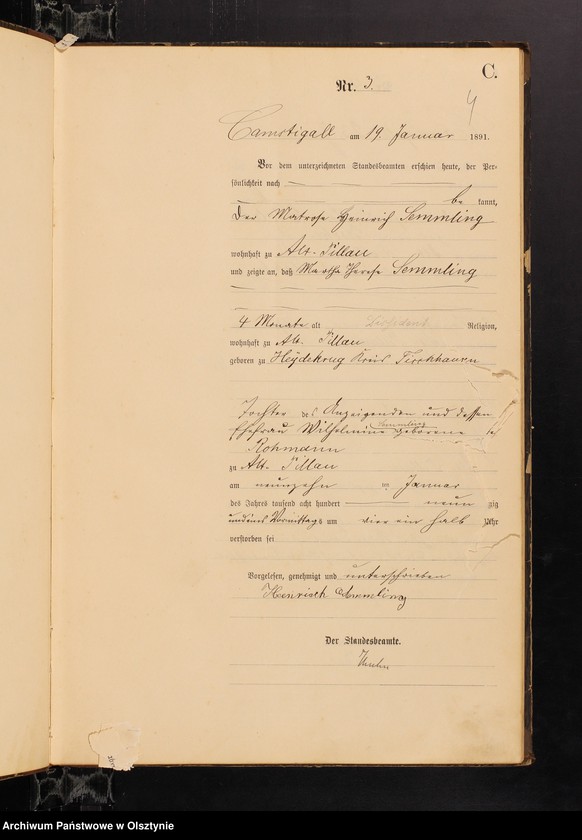 C.
Nr. 3.
4
Camstigall am 19. Januar 1891.
Vor dem unterzeichneten Standesbeamten erschien heute, der Per-
sönlichkeit nach
be kannt,
der Matrose Heinrich Semmling
wohnhaft zu Alt-Pillau
und zeigte an, daß Martha Therese Semmling
4 Monate alt Religion,
wohnhaft zu Alt-Pillau
geboren zu Heydekrug Kreis Fischhausen
Tochter des Anzeigenden und dessen
Ehefrau Wilhelmine Semmling geborene
Rohmann
zu Alt-Pillau
am neunzehn ten Januar
des Jahres tausend acht hundert neun zig
und eins Vormittags um vier ein halb Uhr
verstorben sei
Vorgelesen, genehmigt und unterschrieben
Heinrich Semmling
Der Standesbeamte.
Archiwum Państwowe w Olsztynie